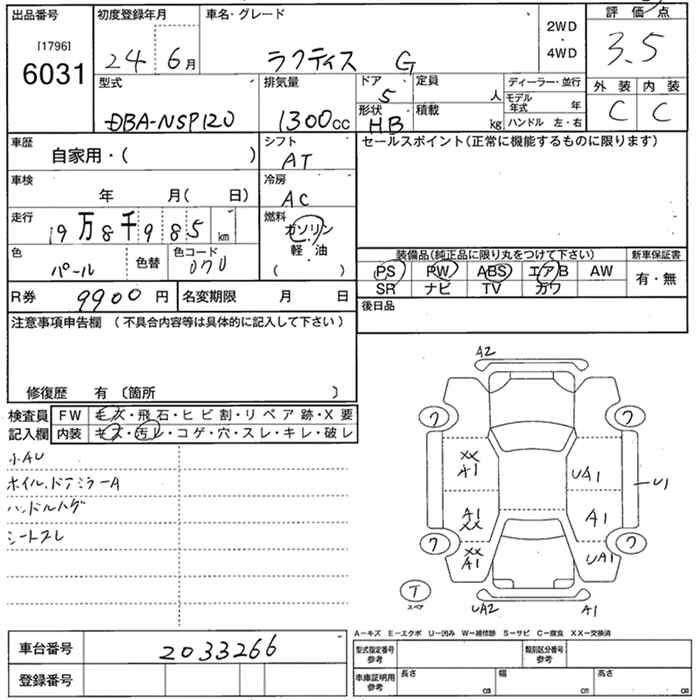 出品番号 初度登録年月 車名・グレード 2WD・4WD 評価点
[1796] 6031 24 6月 ラクティス G 3.5
型式 排気量 ドア 5 定員 人 ディーラー・並行 外装 内装
DBA-NSP120 1300cc 形状 HB 積載 kg モデル年式 年 C C
ハンドル 左・右
車歴 シフト セールスポイント(正常に機能するものに限ります)
自家用・( ) AT
車検 冷房
年 月( 日) AC
走行 燃料
19万8千985km ガソリン
軽・油
( )
色 パール 色替 色コード 070 装備品(純正品に限り丸をつけて下さい) 新車保証書
PS PW ABS エアB AW 有・無
SR ナビ TV カワ
R券 9900円 名変期限 月 日 後日品
注意事項申告欄 (不具合内容等は具体的に記入して下さい)
修復歴 有 〔箇所 〕
検査員 FW キズ・飛石・ヒビ割・リペア跡・X要
記入欄 内装 キズ・汚レ・コゲ・穴・スレ・キレ・破レ
小AU
ホイル、ドアミラーA
ハンドルハゲ
シートスレ
A2
ワ ワ
XX A1 UA1 U1
A1 XX A1
ワ ワ
XX A1 UA1
T
スペア
UA2 A1
A-キズ E-エクボ U-凹み W-補修跡 S-サビ C-腐食 XX-交換済
車台番号 2033266 型式指定番号 参考 類別区分番号 参考
登録番号 車庫証明用 参考 長さ cm 幅 cm 高さ cm